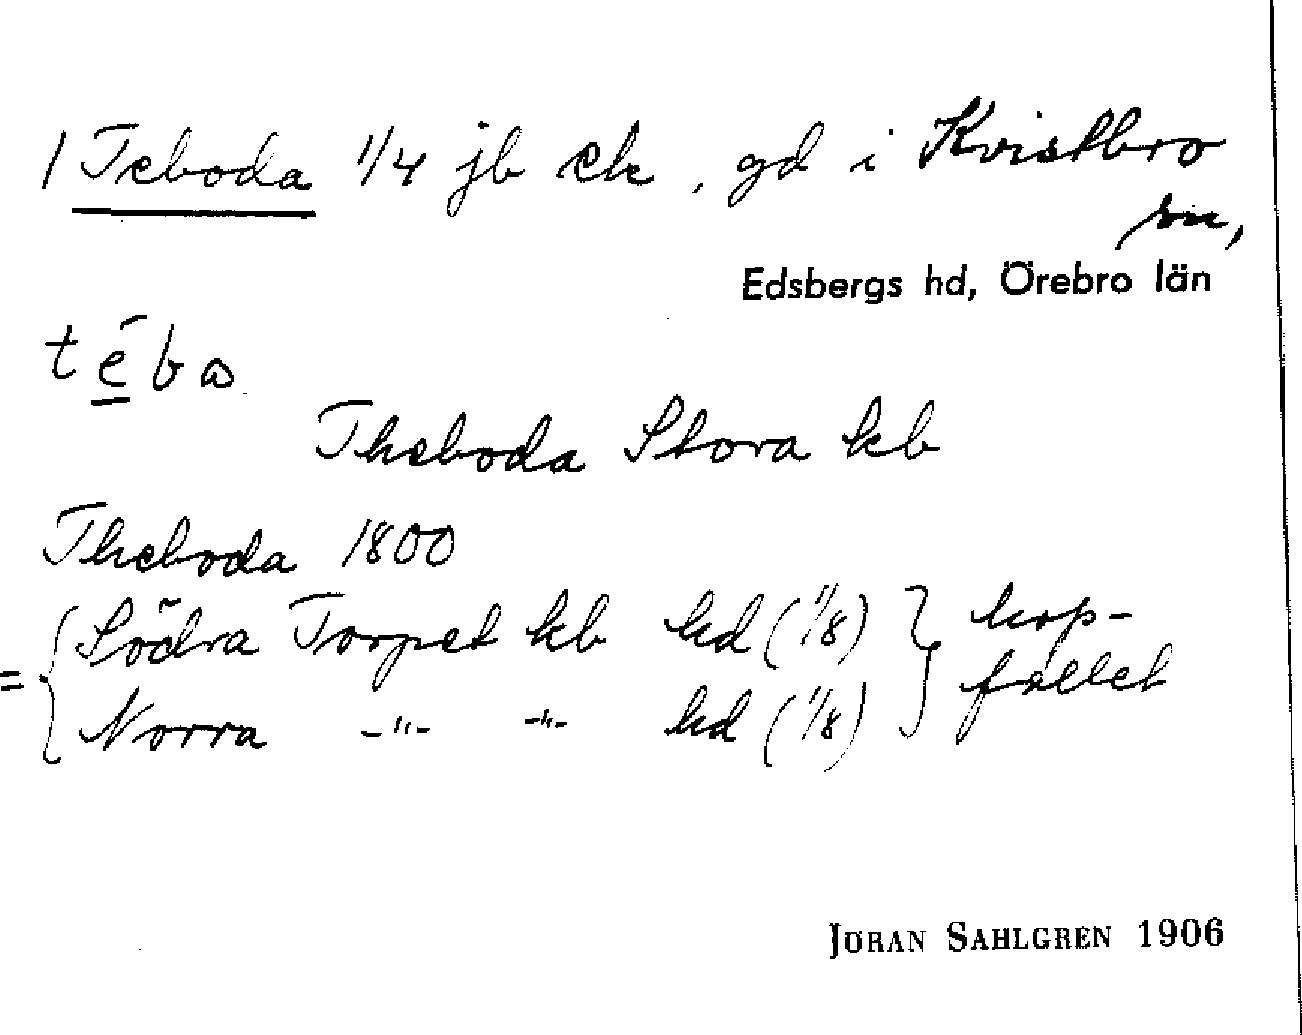 1 Teboda 1/4 jb ek, gd i Kvistbro
sn,
Edsbergs hd, Örebro län
téba
Theboda Stora kb
Theboda 1800
= { Södra Torpet kb hd (1/8) } hop-
Norra -"- -"- hd (1/8) fallet
JÖRAN SAHLGREN 1906